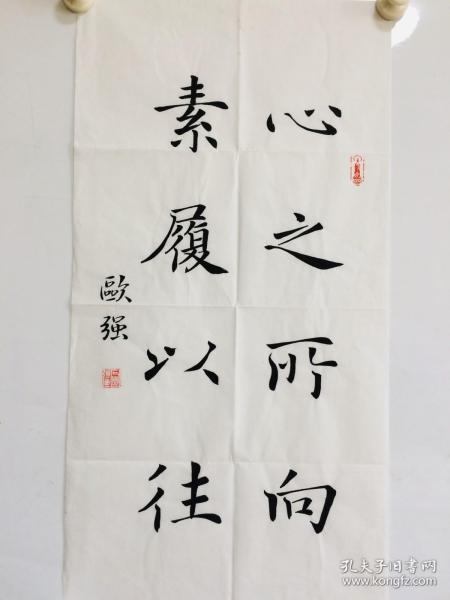 心之所向
素履以往
歐强
孔夫子旧书网
www.kongfz.com